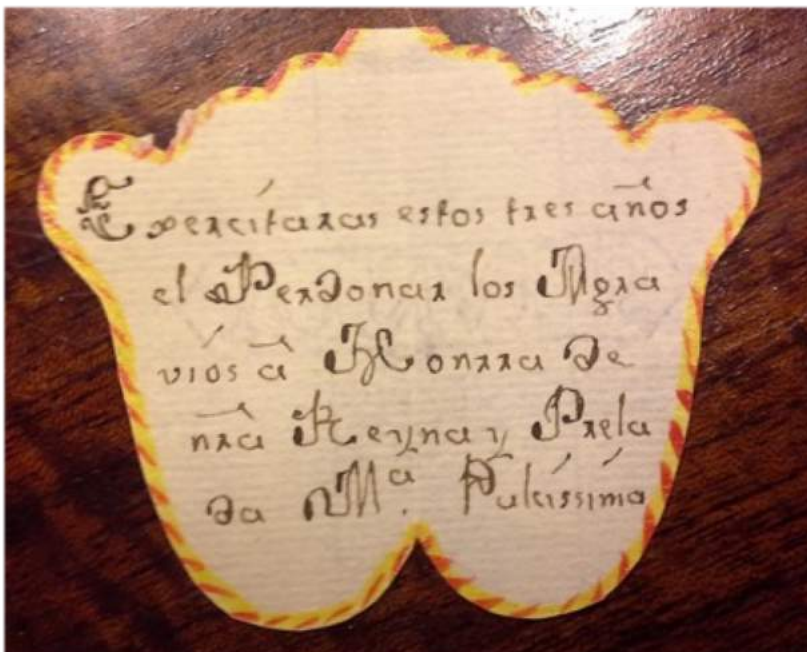 Exercitaras estos tres años
el Perdonar los Agra
vios â Honrra de
nr̃a Reyna y Prela
da Mª. Purissima